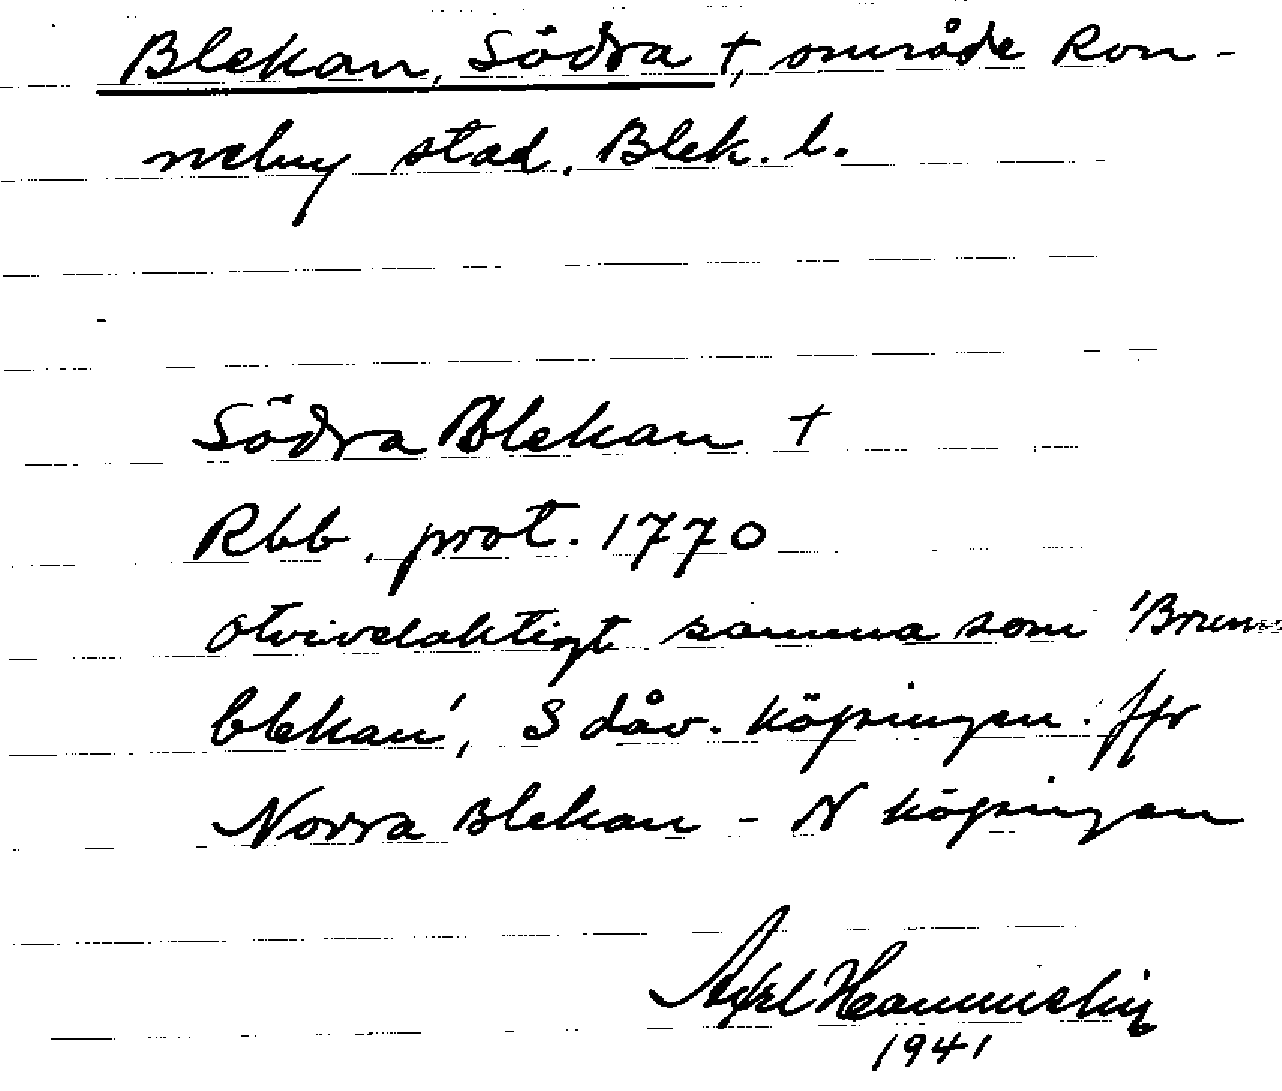 Blekan, Södra †, område Ron-
neby stad. Blek. l.
Södra Blekan †
Rbb. prot. 1770
otvivelaktigt samma som 'Brunn
blekan', S dåv. köpingen. Jfr
Norra Blekan - N köpingen
Axel Hammelin
1941